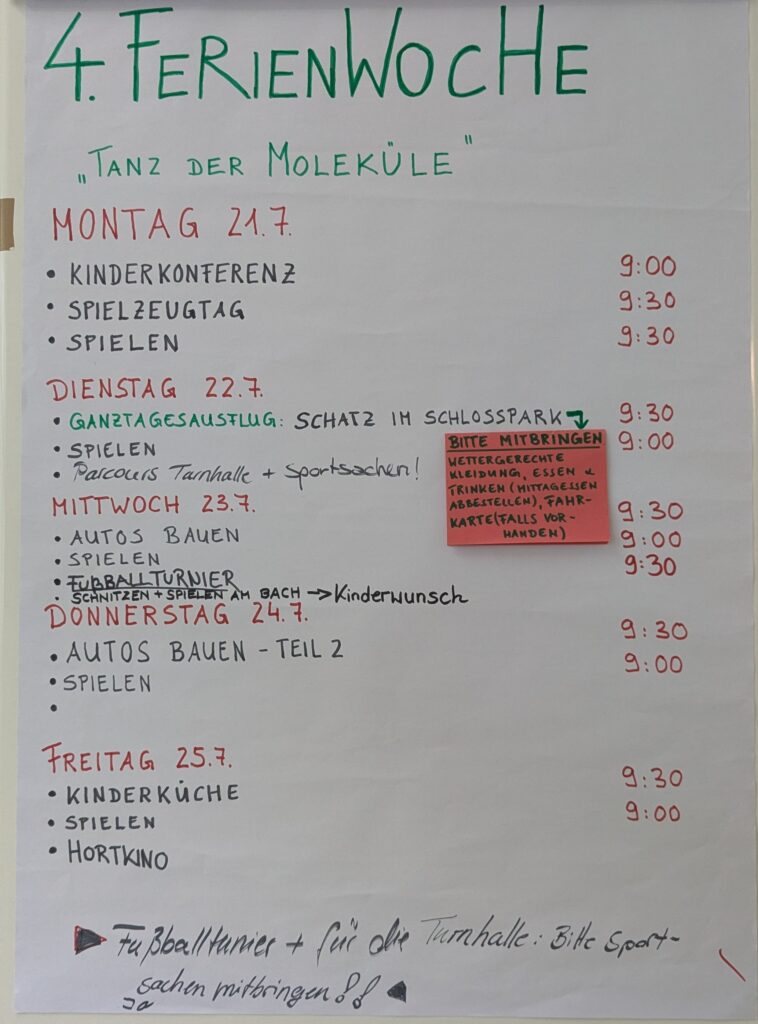 4. FERIENWOCHE
„TANZ DER MOLEKÜLE"
MONTAG 21.7.
• KINDERKONFERENZ 9:00
• SPIELZEUGTAG 9:30
• SPIELEN 9:30
DIENSTAG 22.7.
• GANZTAGESAUSFLUG: SCHATZ IM SCHLOSSPARK 9:30
• SPIELEN 9:00
• Parcours Turnhalle + Sportsachen!
BITTE MITBRINGEN
WETTERGERECHTE
KLEIDUNG, ESSEN &
TRINKEN (MITTAGESSEN
ABBESTELLEN), FAHR-
KARTE (FALLS VOR-
HANDEN)
MITTWOCH 23.7.
• AUTOS BAUEN 9:30
• SPIELEN 9:00
• FUßBALLTURNIER 9:30
• SCHNITZEN + SPIELEN AM BACH → Kinderwunsch
DONNERSTAG 24.7.
• AUTOS BAUEN - TEIL 2 9:30
• SPIELEN 9:00
•
FREITAG 25.7.
• KINDERKÜCHE 9:30
• SPIELEN 9:00
• HORTKINO
▶ Fußballturnier + für die Turnhalle: Bitte Sport-
sachen mitbringen!! ◀